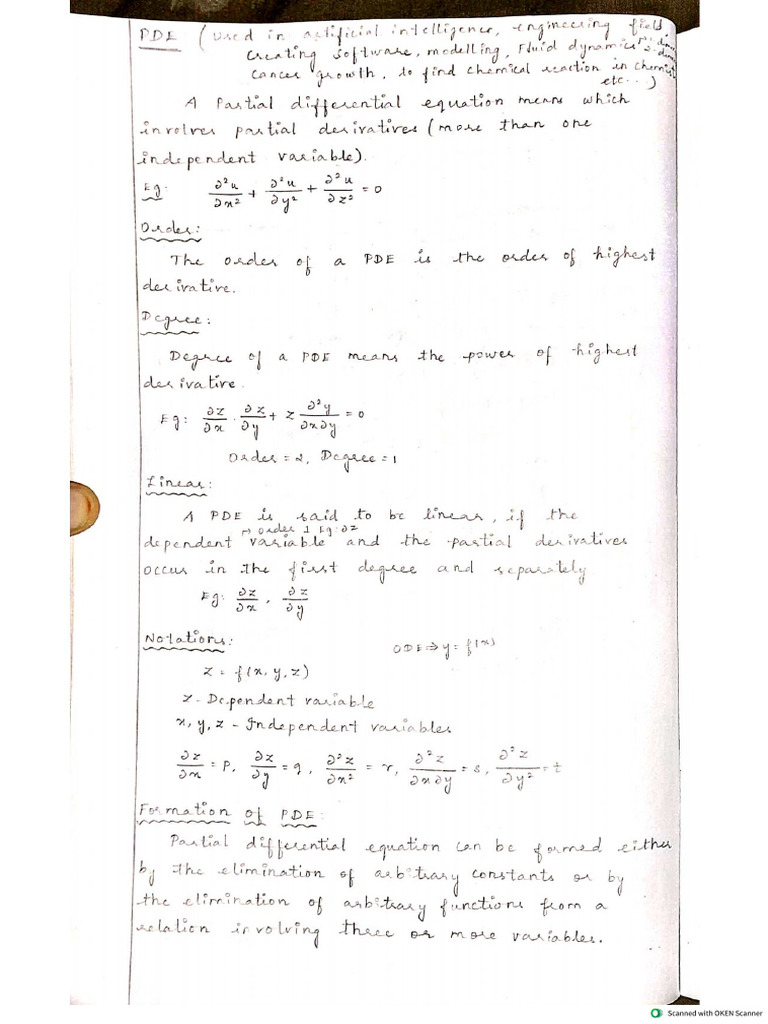 PDE (Used in artificial intelligence, engineering field,
creating software, modelling, Fluid dynamics
cancer growth, to find chemical reaction in
etc...)
A Partial differential equation means which
involves partial derivatives (more than one
independent variable).
Eg: ∂²u/∂x² + ∂²u/∂y² + ∂²u/∂z² = 0
Order:
The order of a PDE is the order of highest
derivative.
Degree:
Degree of a PDE means the power of highest
derivative.
Eg: ∂z/∂x . ∂z/∂y + z ∂²y/∂x∂y = 0
Order = 2, Degree = 1
Linear:
A PDE is said to be linear, if the
→ order 1 Eg: ∂z
dependent variable and the partial derivatives
occur in the first degree and separately
Eg: ∂z/∂x , ∂z/∂y
Notations:
ODE ⇒ y = f(x)
z = f(x, y, z)
z - Dependent variable
x, y, z - Independent variables
∂z/∂x = p, ∂z/∂y = q, ∂²z/∂x² = r, ∂²z/∂x∂y = s, ∂²z/∂y² = t
Formation of PDE:
Partial differential equation can be formed either
by the elimination of arbitrary constants or by
the elimination of arbitrary functions from a
relation involving three or more variables.
Scanned with OKEN Scanner